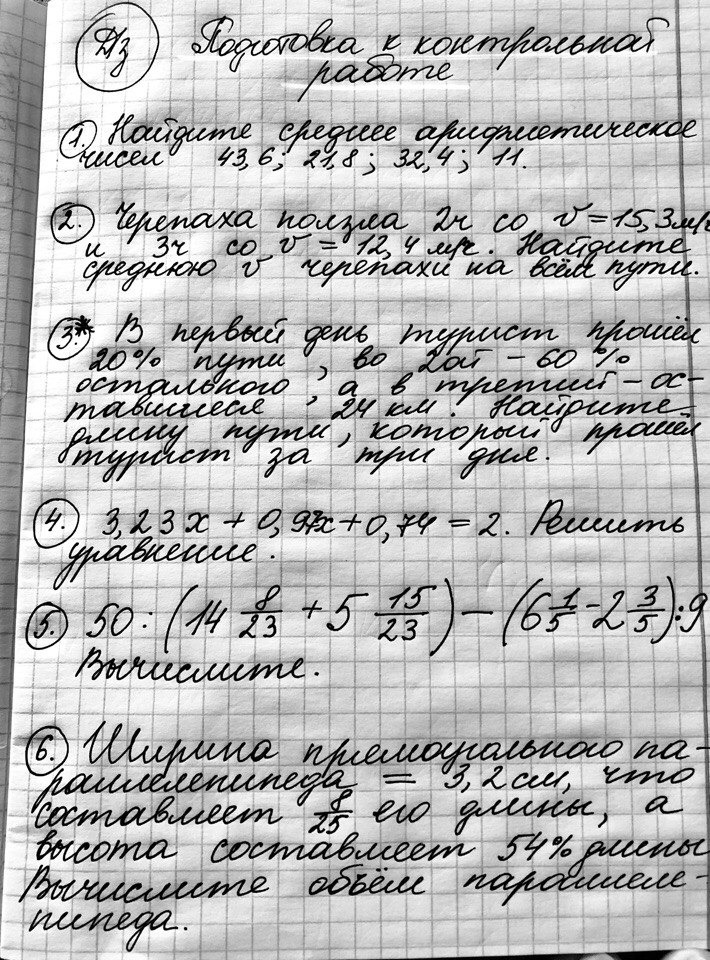 Дз Подготовка к контрольной
работе
1. Найдите среднее арифметическое
чисел 43,6; 21,8; 32,4; 11.
2. Черепаха ползла 2ч со v = 15,3м/ч
и 3ч со v = 12,4 м/ч. Найдите
среднюю v черепахи на всём пути.
3.* В первый день турист прошёл
20% пути, во 2ой – 60%
остального, а в третий – ос-
тавшиеся 24 км. Найдите
длину пути, который прошёл
турист за три дня.
4. 3,23x + 0,97x + 0,74 = 2. Решить
уравнение.
5. 50 : (14 8/23 + 5 15/23) – (6 1/5 - 2 3/5) : 9
Вычислите.
6. Ширина прямоугольного па-
раллелепипеда = 3,2 см, что
составляет 8/25 его длины, а
высота составляет 54% длины
Вычислите объём параллеле-
пипеда.